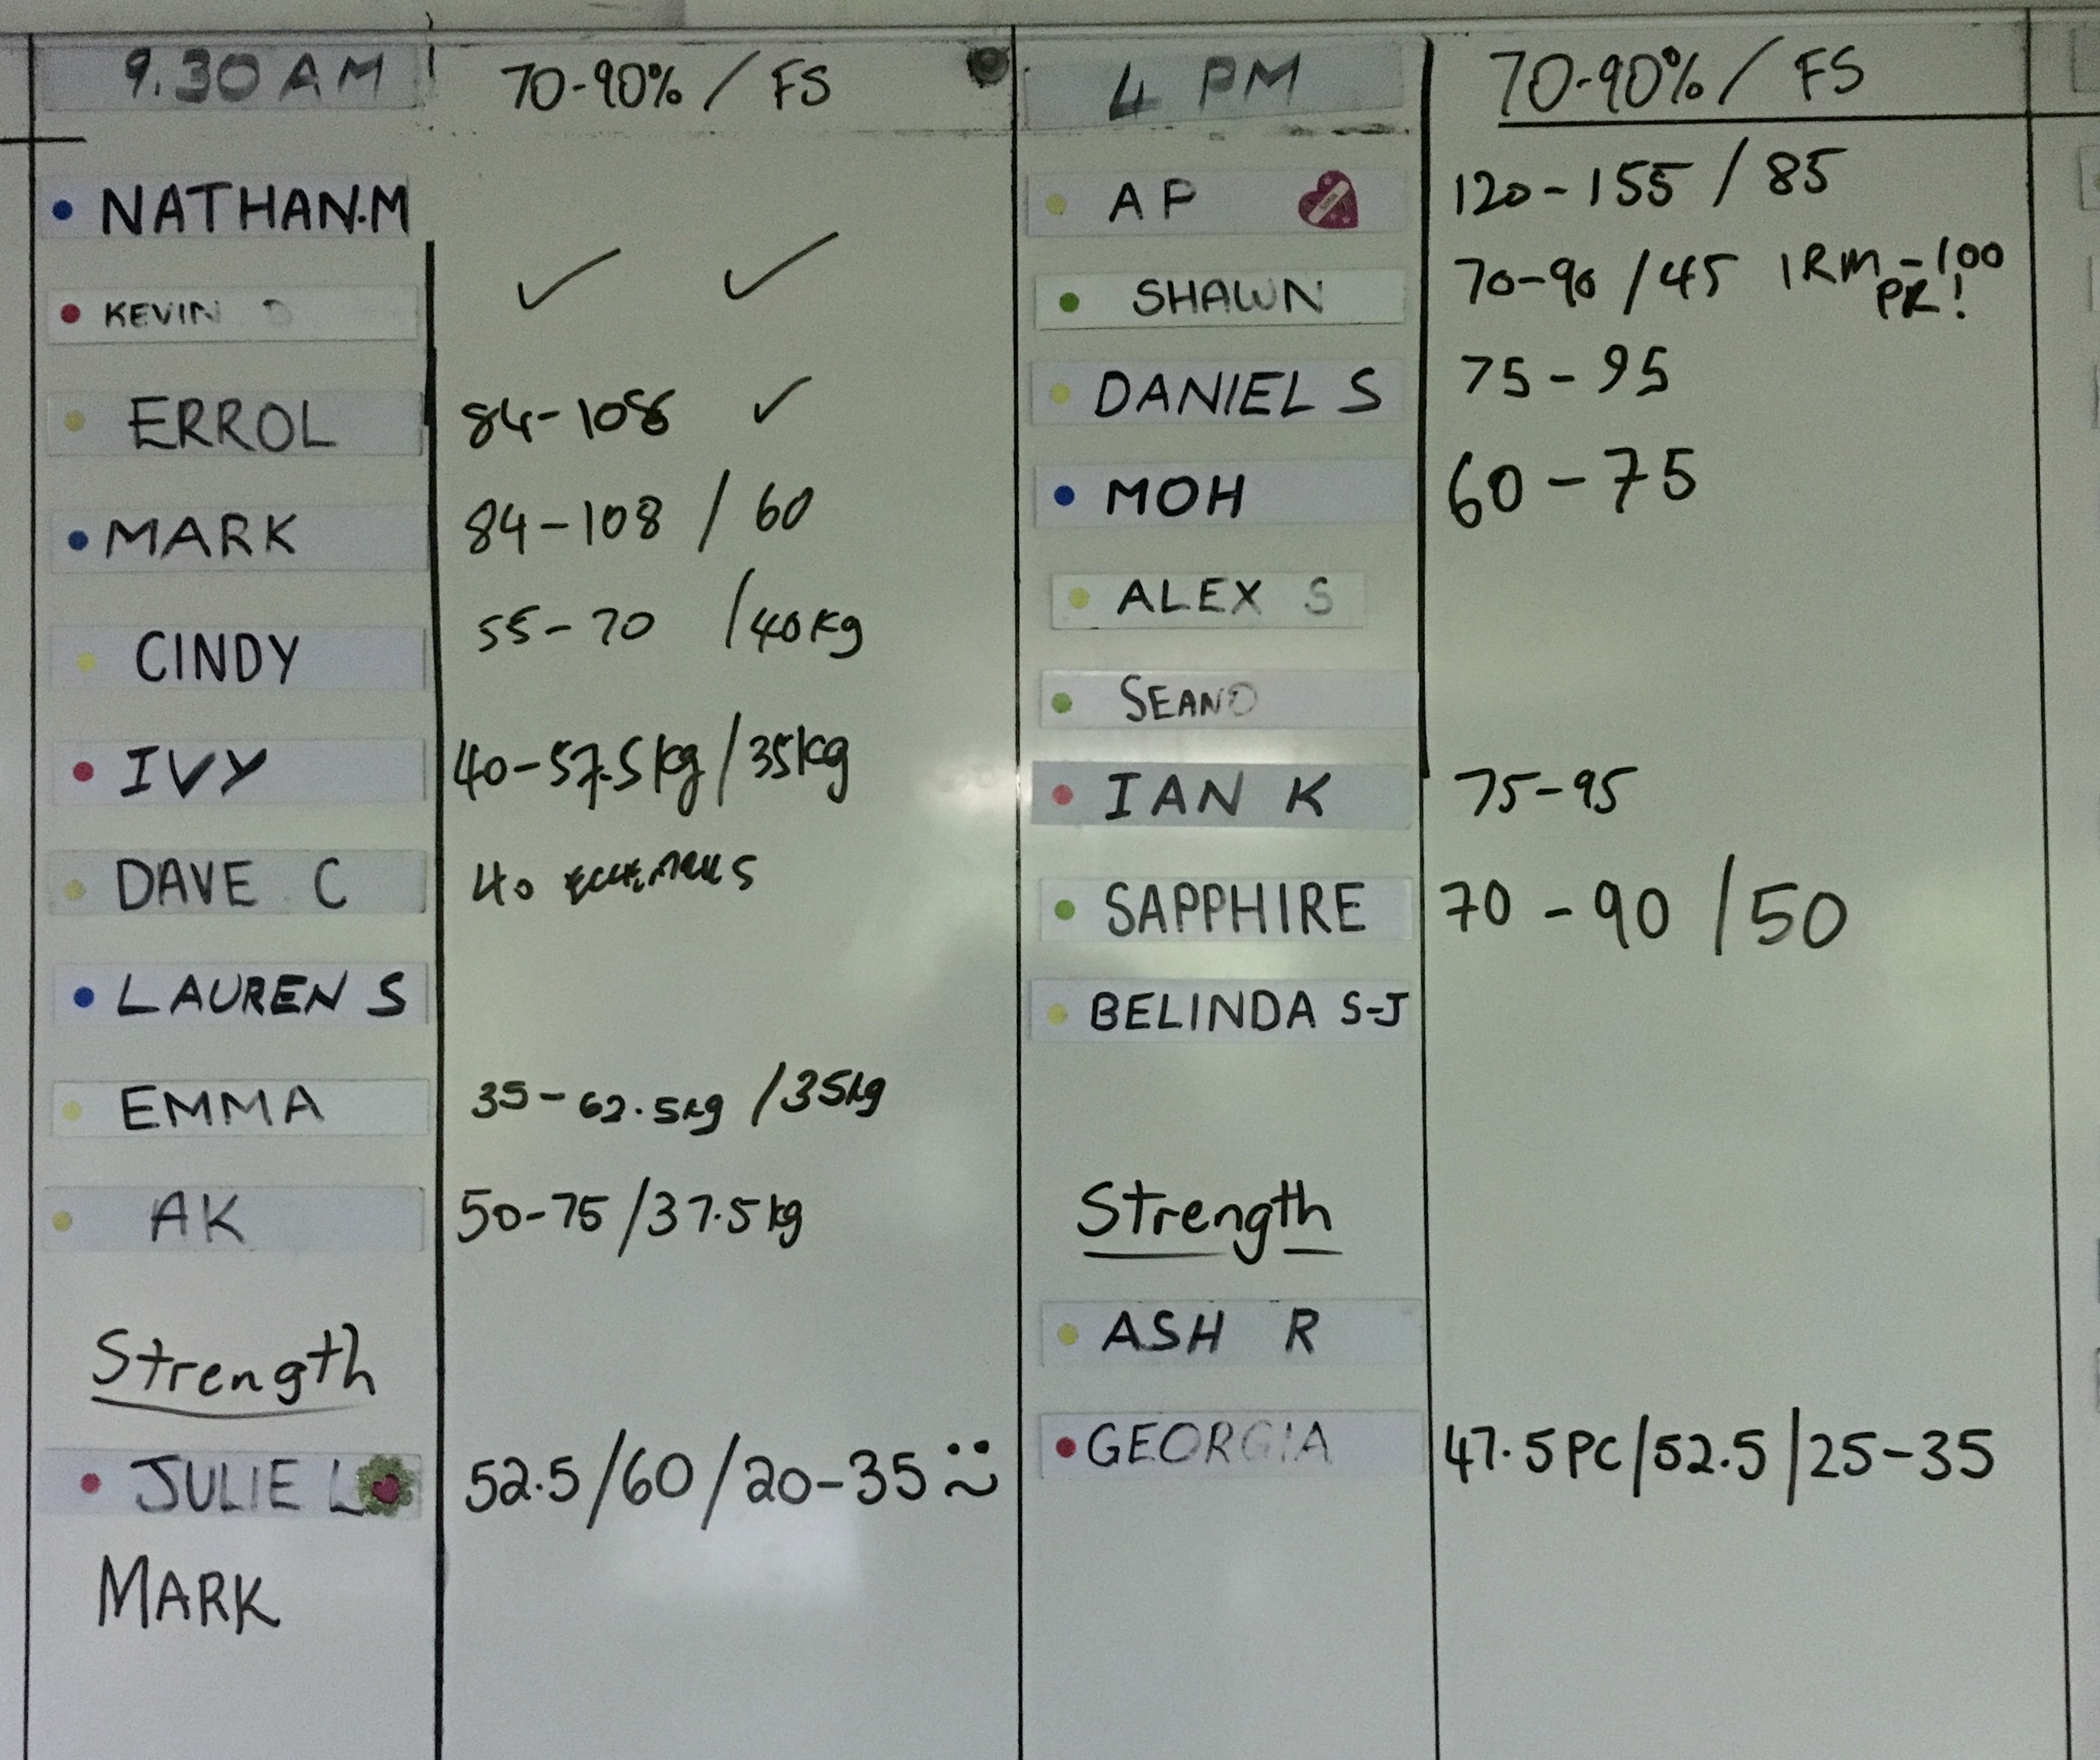 9.30 AM 70-90% / FS
NATHAN.M
KEVIN D ✓ ✓
ERROL 84-108 ✓
MARK 84-108 / 60
CINDY 55-70 / 40kg
IVY 40-57.5kg / 35kg
DAVE C 40
LAUREN S
EMMA 35-62.5kg / 35kg
AK 50-75 / 37.5kg
Strength
JULIE L 52.5 / 60 / 20-35
MARK
4 PM 70-90% / FS
AP 120-155 / 85
SHAWN 70-90 / 45 1RM -100
PR!
DANIEL S 75-95
MOH 60-75
ALEX S
SEANO
IAN K 75-95
SAPPHIRE 70-90 / 50
BELINDA S-J
Strength
ASH R
GEORGIA 47.5PC / 52.5 / 25-35